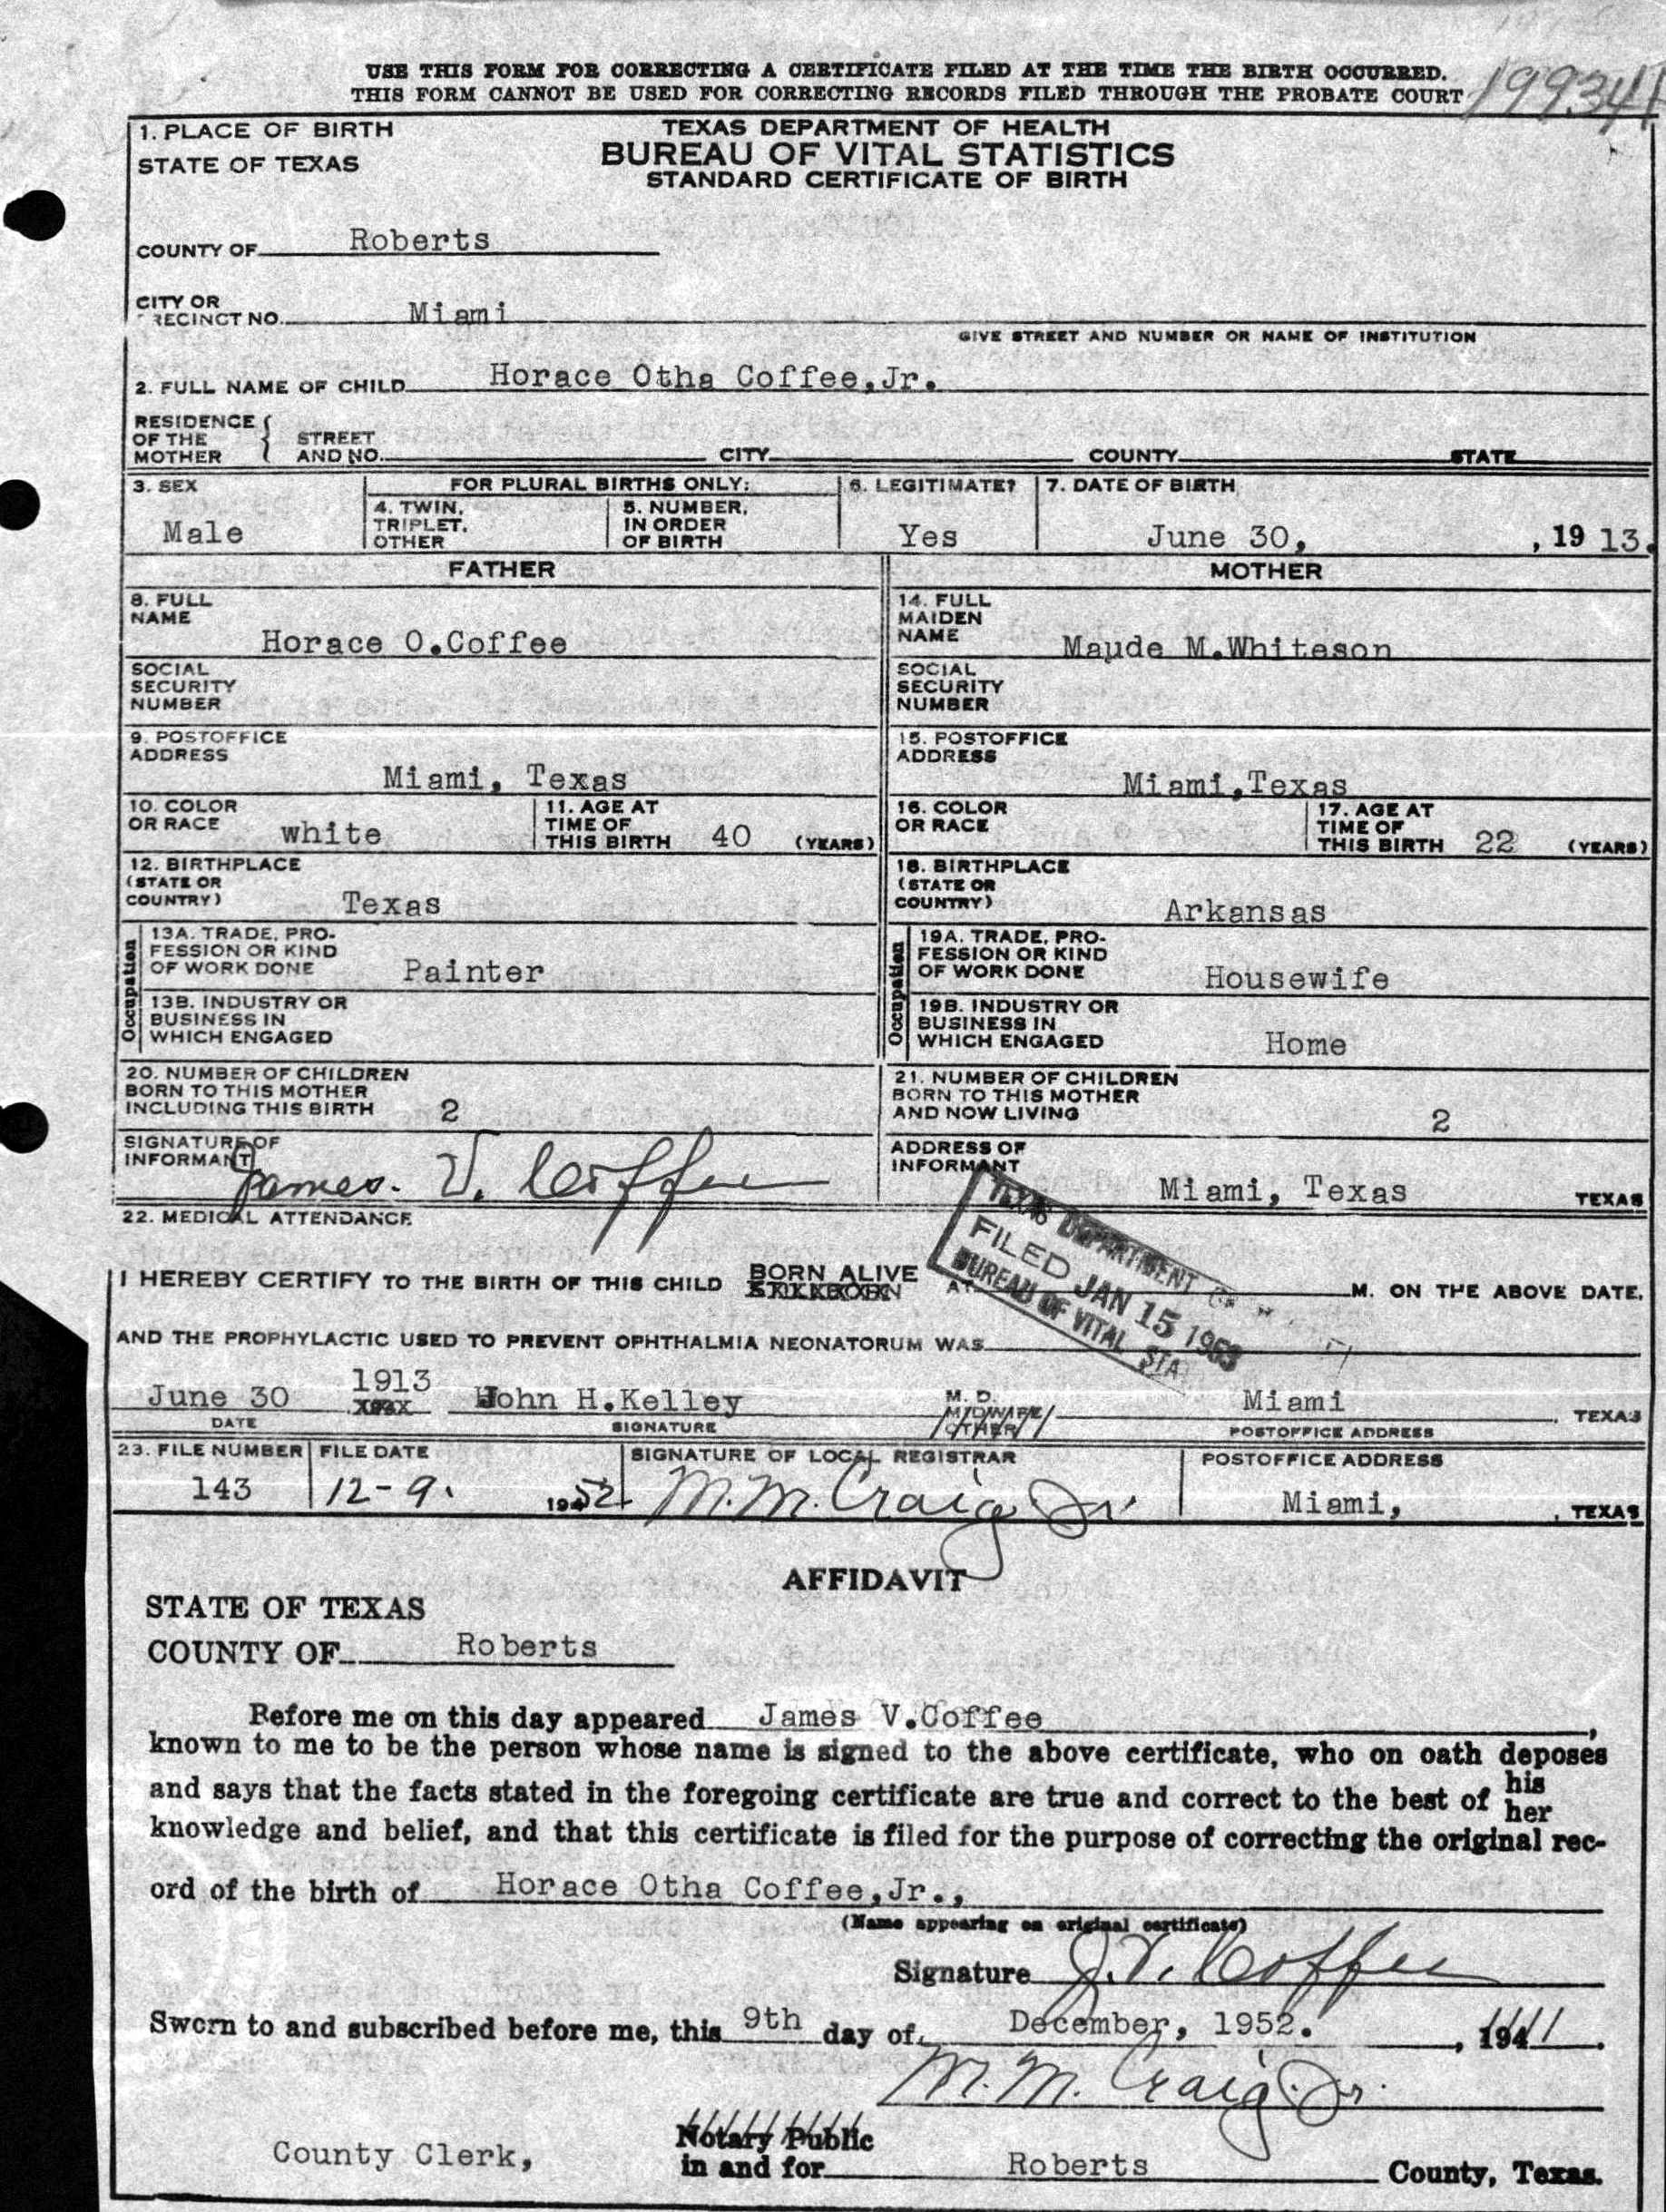 USE THIS FORM FOR CORRECTING A CERTIFICATE FILED AT THE TIME THE BIRTH OCCURRED.
THIS FORM CANNOT BE USED FOR CORRECTING RECORDS FILED THROUGH THE PROBATE COURT
19934
1. PLACE OF BIRTH
STATE OF TEXAS
TEXAS DEPARTMENT OF HEALTH
BUREAU OF VITAL STATISTICS
STANDARD CERTIFICATE OF BIRTH
COUNTY OF Roberts
CITY OR
RECINCT NO. Miami
GIVE STREET AND NUMBER OR NAME OF INSTITUTION
2. FULL NAME OF CHILD Horace Otha Coffee,Jr.
RESIDENCE OF THE MOTHER { STREET AND NO. CITY COUNTY STATE
3. SEX Male
FOR PLURAL BIRTHS ONLY:
4. TWIN, TRIPLET, OTHER
5. NUMBER, IN ORDER OF BIRTH
6. LEGITIMATE? Yes
7. DATE OF BIRTH June 30, , 19 13.
FATHER
MOTHER
8. FULL NAME Horace O.Coffee
14. FULL MAIDEN NAME Maude M.Whiteson
SOCIAL SECURITY NUMBER
SOCIAL SECURITY NUMBER
9. POSTOFFICE ADDRESS Miami, Texas
15. POSTOFFICE ADDRESS Miami,Texas
10. COLOR OR RACE white
11. AGE AT TIME OF THIS BIRTH 40 (YEARS)
16. COLOR OR RACE
17. AGE AT TIME OF THIS BIRTH 22 (YEARS)
12. BIRTHPLACE (STATE OR COUNTRY) Texas
18. BIRTHPLACE (STATE OR COUNTRY) Arkansas
Occupation
13A. TRADE, PROFESSION OR KIND OF WORK DONE Painter
Occupation
19A. TRADE, PROFESSION OR KIND OF WORK DONE Housewife
13B. INDUSTRY OR BUSINESS IN WHICH ENGAGED
19B. INDUSTRY OR BUSINESS IN WHICH ENGAGED Home
20. NUMBER OF CHILDREN BORN TO THIS MOTHER INCLUDING THIS BIRTH 2
21. NUMBER OF CHILDREN BORN TO THIS MOTHER AND NOW LIVING 2
SIGNATURE OF INFORMANT James. V. Coffee
ADDRESS OF INFORMANT Miami, Texas TEXAS
22. MEDICAL ATTENDANCE
TEXAS DEPARTMENT OF
FILED JAN 15 1953
BUREAU OF VITAL STA
I HEREBY CERTIFY TO THE BIRTH OF THIS CHILD BORN ALIVE STILLBORN AT M. ON THE ABOVE DATE,
AND THE PROPHYLACTIC USED TO PREVENT OPHTHALMIA NEONATORUM WAS
June 30 1913 John H.Kelley M. D. MIDWIFE OTHER Miami , TEXAS
DATE SIGNATURE POSTOFFICE ADDRESS
23. FILE NUMBER 143
FILE DATE 12-9. 1952
SIGNATURE OF LOCAL REGISTRAR M. M. Craig Jr.
POSTOFFICE ADDRESS Miami, , TEXAS
AFFIDAVIT
STATE OF TEXAS
COUNTY OF Roberts
Before me on this day appeared James V.Coffee ,
known to me to be the person whose name is signed to the above certificate, who on oath deposes
and says that the facts stated in the foregoing certificate are true and correct to the best of his her
knowledge and belief, and that this certificate is filed for the purpose of correcting the original rec-
ord of the birth of Horace Otha Coffee,Jr.,
(Name appearing on original certificate)
Signature J. V. Coffee
Sworn to and subscribed before me, this 9th day of December, 1952. , 194
M. M. Craig. Jr.
County Clerk, Notary Public
in and for Roberts County, Texas.